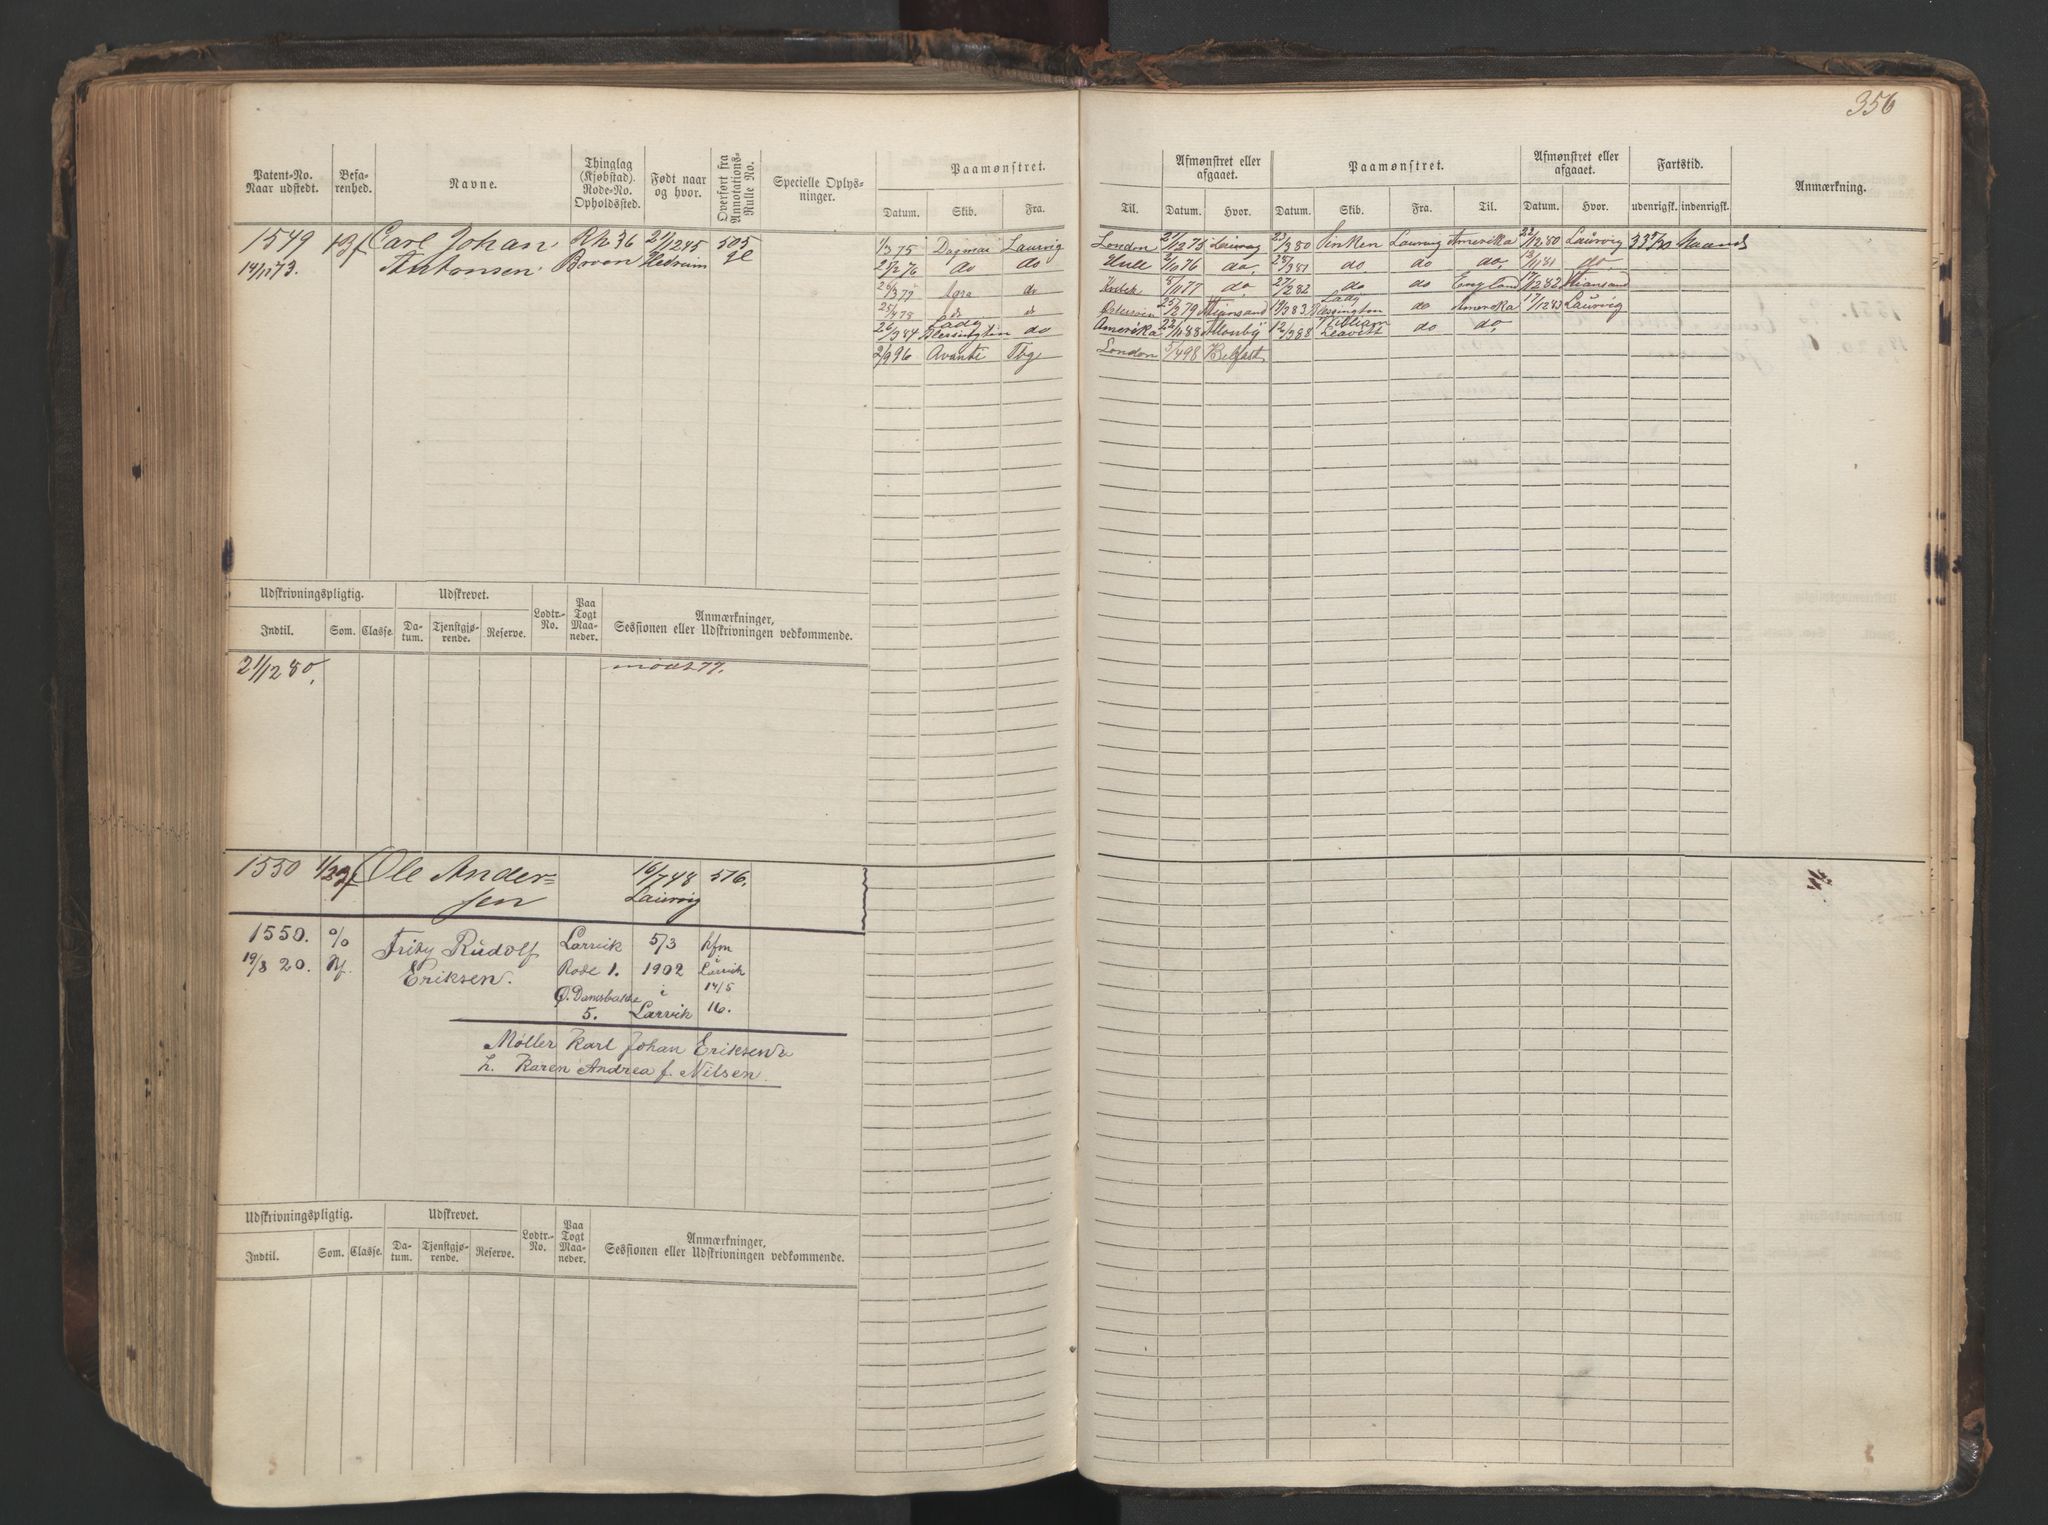 356
Patent-No. Naar udstedt. Befarenhed. Navne. Thinglag (Kjøbstad). Rode-No. Opholdssted. Født naar og hvor. Overført fra Annotations-Rulle No. Specielle Oplysninger. Paamønstret. Afmønstret eller afgaaet. Paamønstret. Afmønstret eller afgaaet. Fartstid. Anmærkning.
Datum. Skib. Fra. Til. Datum. Hvor. Datum. Skib. Fra. Til. Datum. Hvor. udenrigsk. indenrigsk.
1549 Carl Johan Rk 36 21/12 45 505 1/3 75 Dagmar Laurvig London 21/12 75 Laurvig 23/3 80 Sirken Laurvig Amerika 22/12 80 Laurvig Maaned
14/11 73. Antonsen. Hedrum 21/2 76 do do Hull 2/10 76 do. 25/3 81 do do do. 13/11 81 do.
26/3 77 Agra do 5/11 77 do. 27/2 82 do do England 17/12 82 Xtiansand
25/4 78 do do Østersøen 25/2 79 Xtiansand 19/3 83 Lady Blessington do Amerika 17/12 83 Laurvig
26/3 84 Lady Blessington do Amerika 22/1 88 12/3 88 William Leavitt do do.
2/9 96 Avanti Tbg London 5/4 98 Belfast
Udskrivningspligtig. Udskrevet. Lodtr.-No. Paa Togt Maaneder. Anmærkninger, Sessionen eller Udskrivningen vedkommende.
Indtil. Som. Classe. Datum. Tjenstgjørende. Reserve.
21/12 80. mødt 77.
1550 Ole Ander- 16/7 48 516.
sen Laurvig
1550. % Fritz Rudolf Larvik 5/3 hfm
19/8 20. Eriksen. Rode 1. 1902 i Larvik
Ø. Damsbakke i 14/5
5. Larvik 16.
Møller Karl Johan Eriksen
h. Karen Andrea f. Nilsen.
Udskrivningspligtig. Udskrevet. Lodtr.-No. Paa Togt Maaneder. Anmærkninger, Sessionen eller Udskrivningen vedkommende.
Indtil. Som. Classe. Datum. Tjenstgjørende. Reserve.